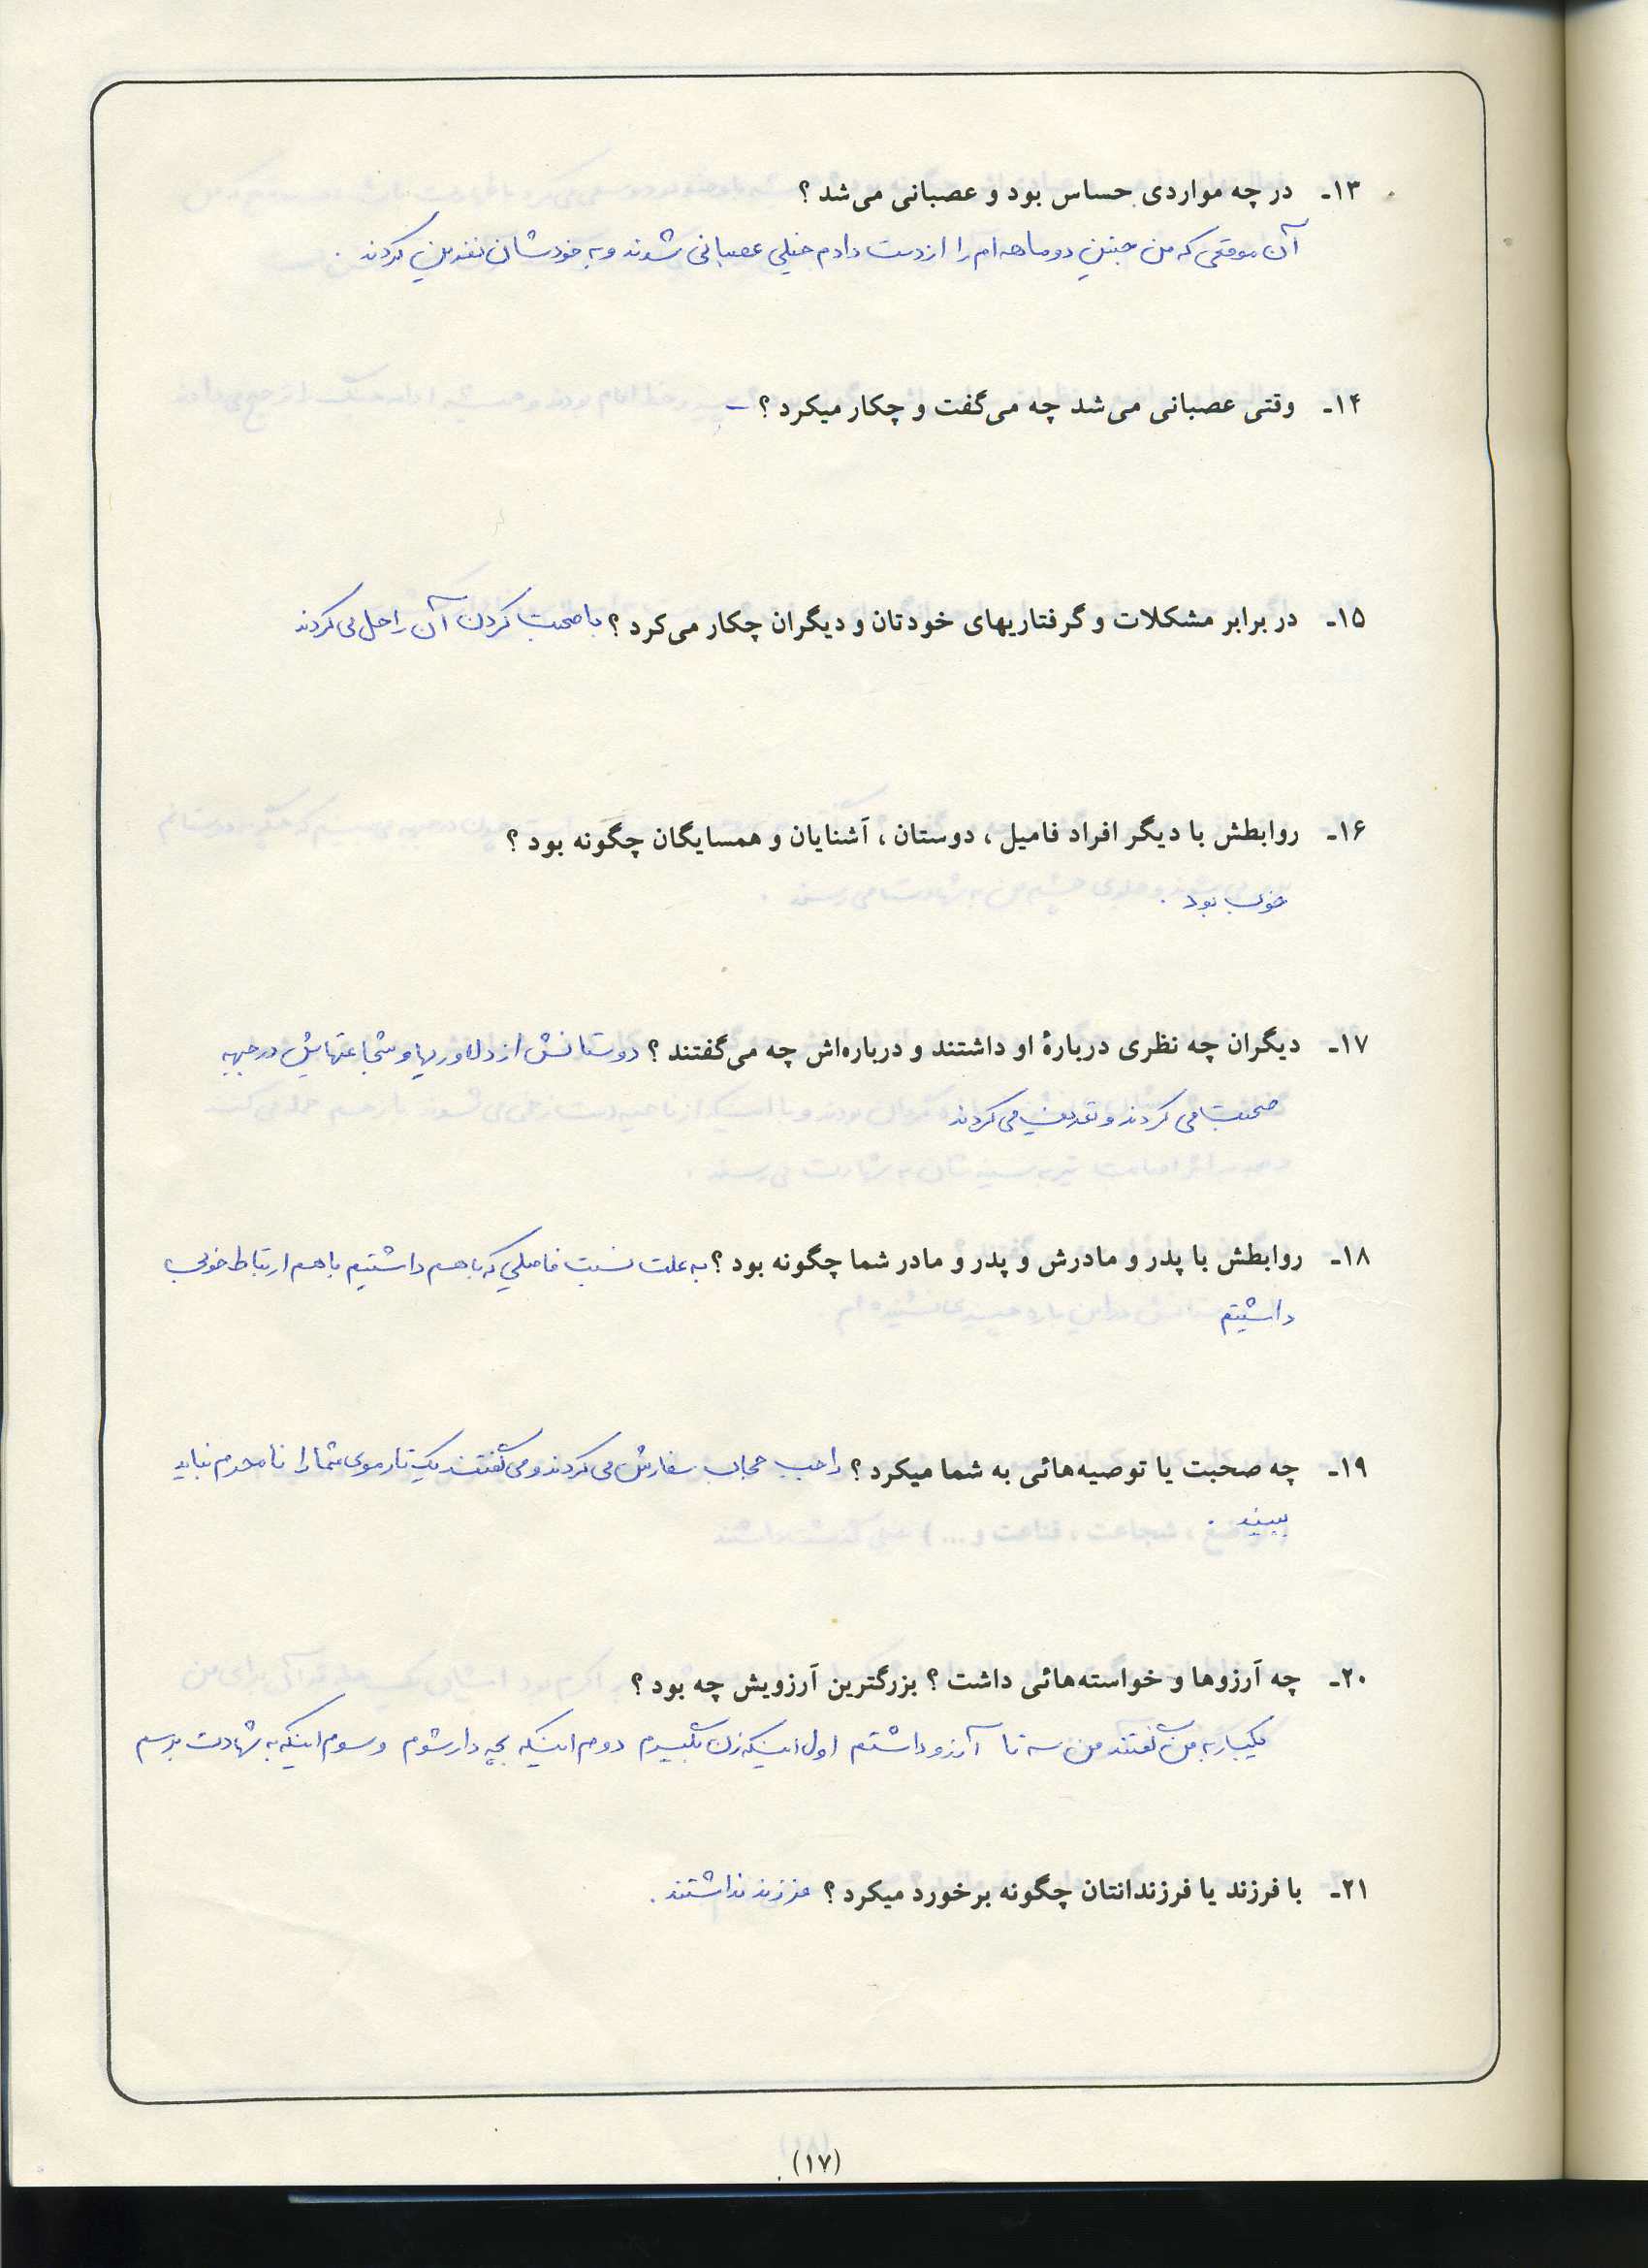 ۱۳ـ در چه مواردی حساس بود و عصبانی می‌شد ؟
آن موقعی که من جنین دو ماهه‌ام را از دست دادم خیلی عصبانی شدند و به خودشان نفرین کردند .
۱۴ـ وقتی عصبانی می‌شد چه می‌گفت و چکار میکرد ؟ –
۱۵ـ در برابر مشکلات و گرفتاریهای خودتان و دیگران چکار می‌کرد ؟ با صحبت کردن آن را حل می‌کردند
۱۶ـ روابطش با دیگر افراد فامیل ، دوستان ، آشنایان و همسایگان چگونه بود ؟
خوب بود .
۱۷ـ دیگران چه نظری دربارهٔ او داشتند و درباره‌اش چه می‌گفتند ؟ دوستانش از دلاوریها و شجاعتهایش در جبهه
صحبت می کردند و تعریف می کردند
۱۸ـ روابطش با پدر و مادرش و پدر و مادر شما چگونه بود ؟ به علت نسبت فامیلی که با هم داشتیم با هم ارتباط خوبی
داشتیم
۱۹ـ چه صحبت یا توصیه‌هائی به شما میکرد ؟ راجب حجاب سفارش می کردند و می گفتند یک تار موی شما را نامحرم نباید
ببیند .
۲۰ـ چه آرزوها و خواسته‌هائی داشت ؟ بزرگترین آرزویش چه بود ؟
یکبار به من گفتند من سه تا آرزو داشتم اول اینکه زن بگیرم دوم اینکه بچه دار شوم و سوم اینکه به شهادت برسم
۲۱ـ با فرزند یا فرزندانتان چگونه برخورد میکرد ؟ فرزند نداشتند .
(۱۷)